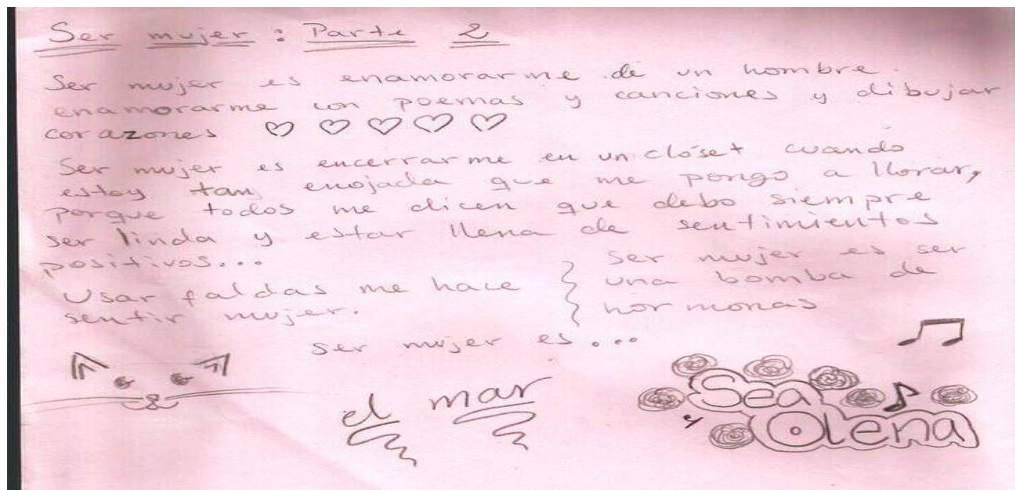 Ser mujer : Parte 2
Ser mujer es enamorarme de un hombre.
enamorarme con poemas y canciones y dibujar
corazones ♡ ♡ ♡ ♡ ♡
Ser mujer es encerrarme en un clóset cuando
estoy tan enojada que me pongo a llorar,
porque todos me dicen que debo siempre
ser linda y estar llena de sentimientos
positivos...
Usar faldas me hace
sentir mujer.
Ser mujer es ser
una bomba de
hormonas
Ser mujer es...
el mar
Sea
y Olena